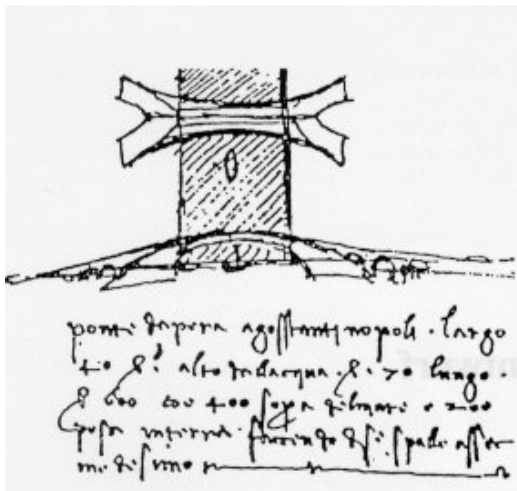 ponte da pera a gosstantinopoli · largo
40 br alto dallacqua br 70 lungo ·
br 600 coe 400 sopa del mare e 200
posa in terra facendo di se spalle asse
medesimo
ntwarf